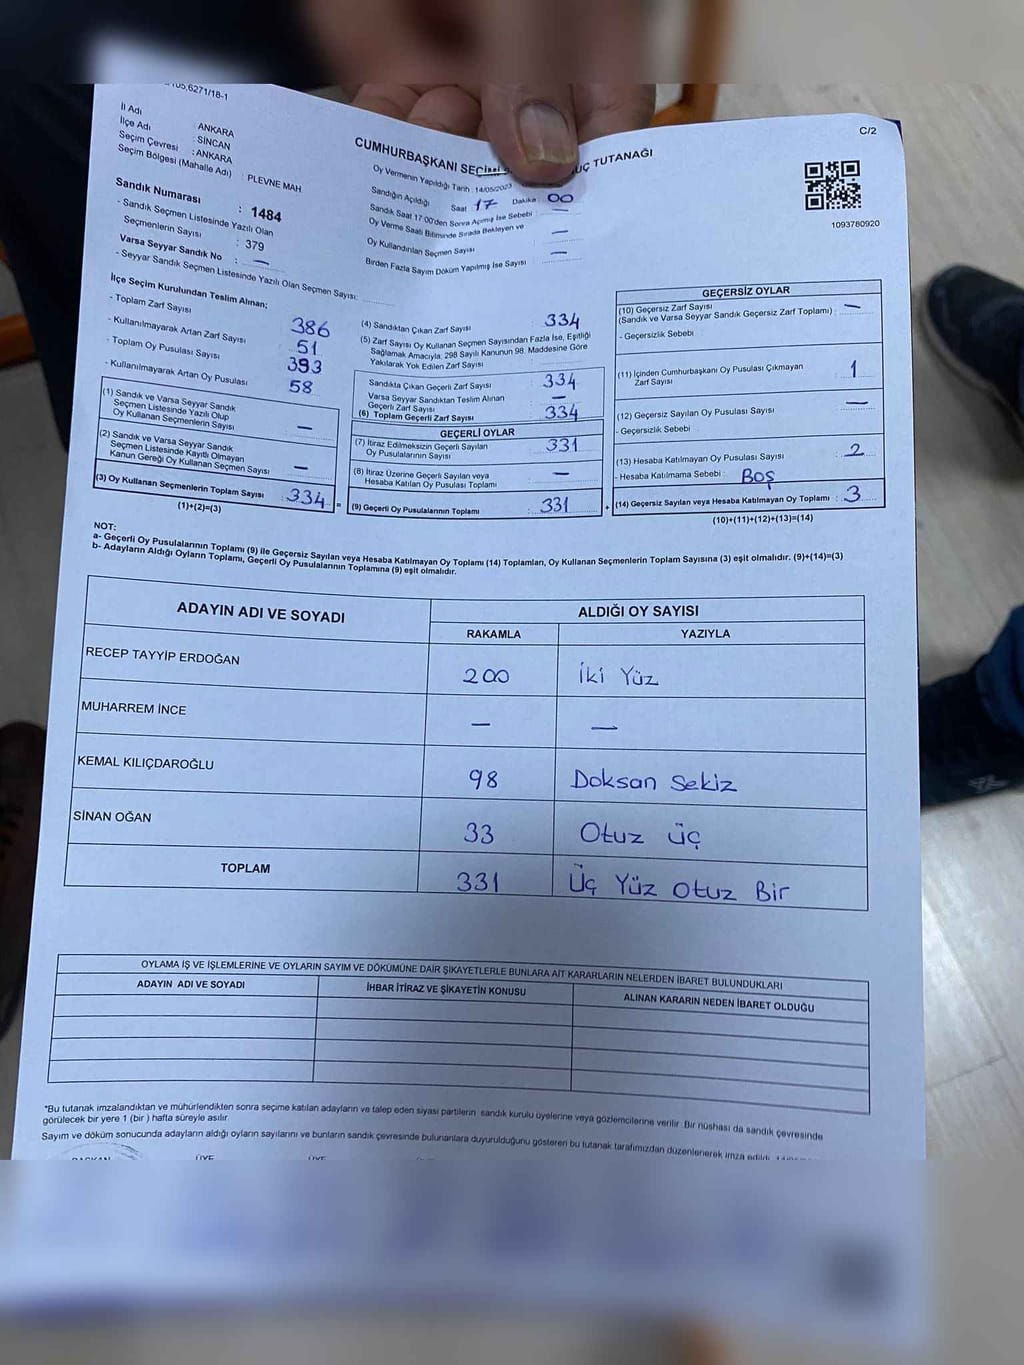 6271/18-1
C/2
İl Adı : ANKARA
İlçe Adı : SİNCAN
Seçim Çevresi : ANKARA
Seçim Bölgesi (Mahalle Adı) : PLEVNE MAH
CUMHURBAŞKANI TUTANAĞI
Oy Vermenin Yapıldığı Tarih : 14/05/2023
Sandığın Açıldığı Saat 17 Dakika 00
Sandık Saat 17:00'den Sonra Açılmış İse Sebebi : —
Oy Verme Saati Bitiminde Sırada Bekleyen ve
Oy Kullandırılan Seçmen Sayısı : —
Birden Fazla Sayım Döküm Yapılmış İse Sayısı : —
1093780920
Sandık Numarası : 1484
- Sandık Seçmen Listesinde Yazılı Olan
Seçmenlerin Sayısı : 379
Varsa Seyyar Sandık No : —
- Seyyar Sandık Seçmen Listesinde Yazılı Olan Seçmen Sayısı:
İlçe Seçim Kurulundan Teslim Alınan;
- Toplam Zarf Sayısı 386
- Kullanılmayarak Artan Zarf Sayısı 51
- Toplam Oy Pusulası Sayısı 393
- Kullanılmayarak Artan Oy Pusulası 58
(1) Sandık ve Varsa Seyyar Sandık
Seçmen Listesinde Yazılı Olup
Oy Kullanan Seçmenlerin Sayısı —
(2) Sandık ve Varsa Seyyar Sandık
Seçmen Listesinde Kayıtlı Olmayan
Kanun Gereği Oy Kullanan Seçmen Sayısı —
(3) Oy Kullanan Seçmenlerin Toplam Sayısı : 334 =
(1)+(2)=(3)
(4) Sandıktan Çıkan Zarf Sayısı : 334
(5) Zarf Sayısı Oy Kullanan Seçmen Sayısından Fazla İse, Eşitliği
Sağlamak Amacıyla, 298 Sayılı Kanunun 98. Maddesine Göre
Yakılarak Yok Edilen Zarf Sayısı
Sandıkta Çıkan Geçerli Zarf Sayısı : 334
Varsa Seyyar Sandıktan Teslim Alınan
Geçerli Zarf Sayısı —
(6) Toplam Geçerli Zarf Sayısı : 334
GEÇERLİ OYLAR
(7) İtiraz Edilmeksizin Geçerli Sayılan
Oy Pusulalarının Sayısı : 331
(8) İtiraz Üzerine Geçerli Sayılan veya
Hesaba Katılan Oy Pusulası Toplamı —
(9) Geçerli Oy Pusulalarının Toplamı : 331 +
GEÇERSİZ OYLAR
(10) Geçersiz Zarf Sayısı
(Sandık ve Varsa Seyyar Sandık Geçersiz Zarf Toplamı) : —
- Geçersizlik Sebebi :
(11) İçinden Cumhurbaşkanı Oy Pusulası Çıkmayan
Zarf Sayısı 1
(12) Geçersiz Sayılan Oy Pusulası Sayısı —
- Geçersizlik Sebebi :
(13) Hesaba Katılmayan Oy Pusulası Sayısı : 2
- Hesaba Katılmama Sebebi : BOŞ
(14) Geçersiz Sayılan veya Hesaba Katılmayan Oy Toplamı : 3
(10)+(11)+(12)+(13)=(14)
NOT:
a- Geçerli Oy Pusulalarının Toplamı (9) ile Geçersiz Sayılan veya Hesaba Katılmayan Oy Toplamı (14) Toplamları, Oy Kullanan Seçmenlerin Toplam Sayısına (3) eşit olmalıdır. (9)+(14)=(3)
b- Adayların Aldığı Oyların Toplamı, Geçerli Oy Pusulalarının Toplamına (9) eşit olmalıdır.
ADAYIN ADI VE SOYADI ALDIĞI OY SAYISI
RAKAMLA YAZIYLA
RECEP TAYYİP ERDOĞAN 200 İki Yüz
MUHARREM İNCE — —
KEMAL KILIÇDAROĞLU 98 Doksan Sekiz
SİNAN OĞAN 33 Otuz Üç
TOPLAM 331 Üç Yüz Otuz Bir
OYLAMA İŞ VE İŞLEMLERİNE VE OYLARIN SAYIM VE DÖKÜMÜNE DAİR ŞİKAYETLERLE BUNLARA AİT KARARLARIN NELERDEN İBARET BULUNDUKLARI
ADAYIN ADI VE SOYADI İHBAR İTİRAZ VE ŞİKAYETİN KONUSU ALINAN KARARIN NEDEN İBARET OLDUĞU
*Bu tutanak imzalandıktan ve mühürlendikten sonra seçime katılan adayların ve talep eden siyasi partilerin sandık kurulu üyelerine veya gözlemcilerine verilir. Bir nüshası da sandık çevresinde
görülecek bir yere 1 (bir ) hafta süreyle asılır.
Sayım ve döküm sonucunda adayların aldığı oyların sayılarını ve bunların sandık çevresinde bulunanlara duyurulduğunu gösteren bu tutanak tarafımızdan düzenlenerek imza edildi.
BAŞKAN ÜYE ÜYE